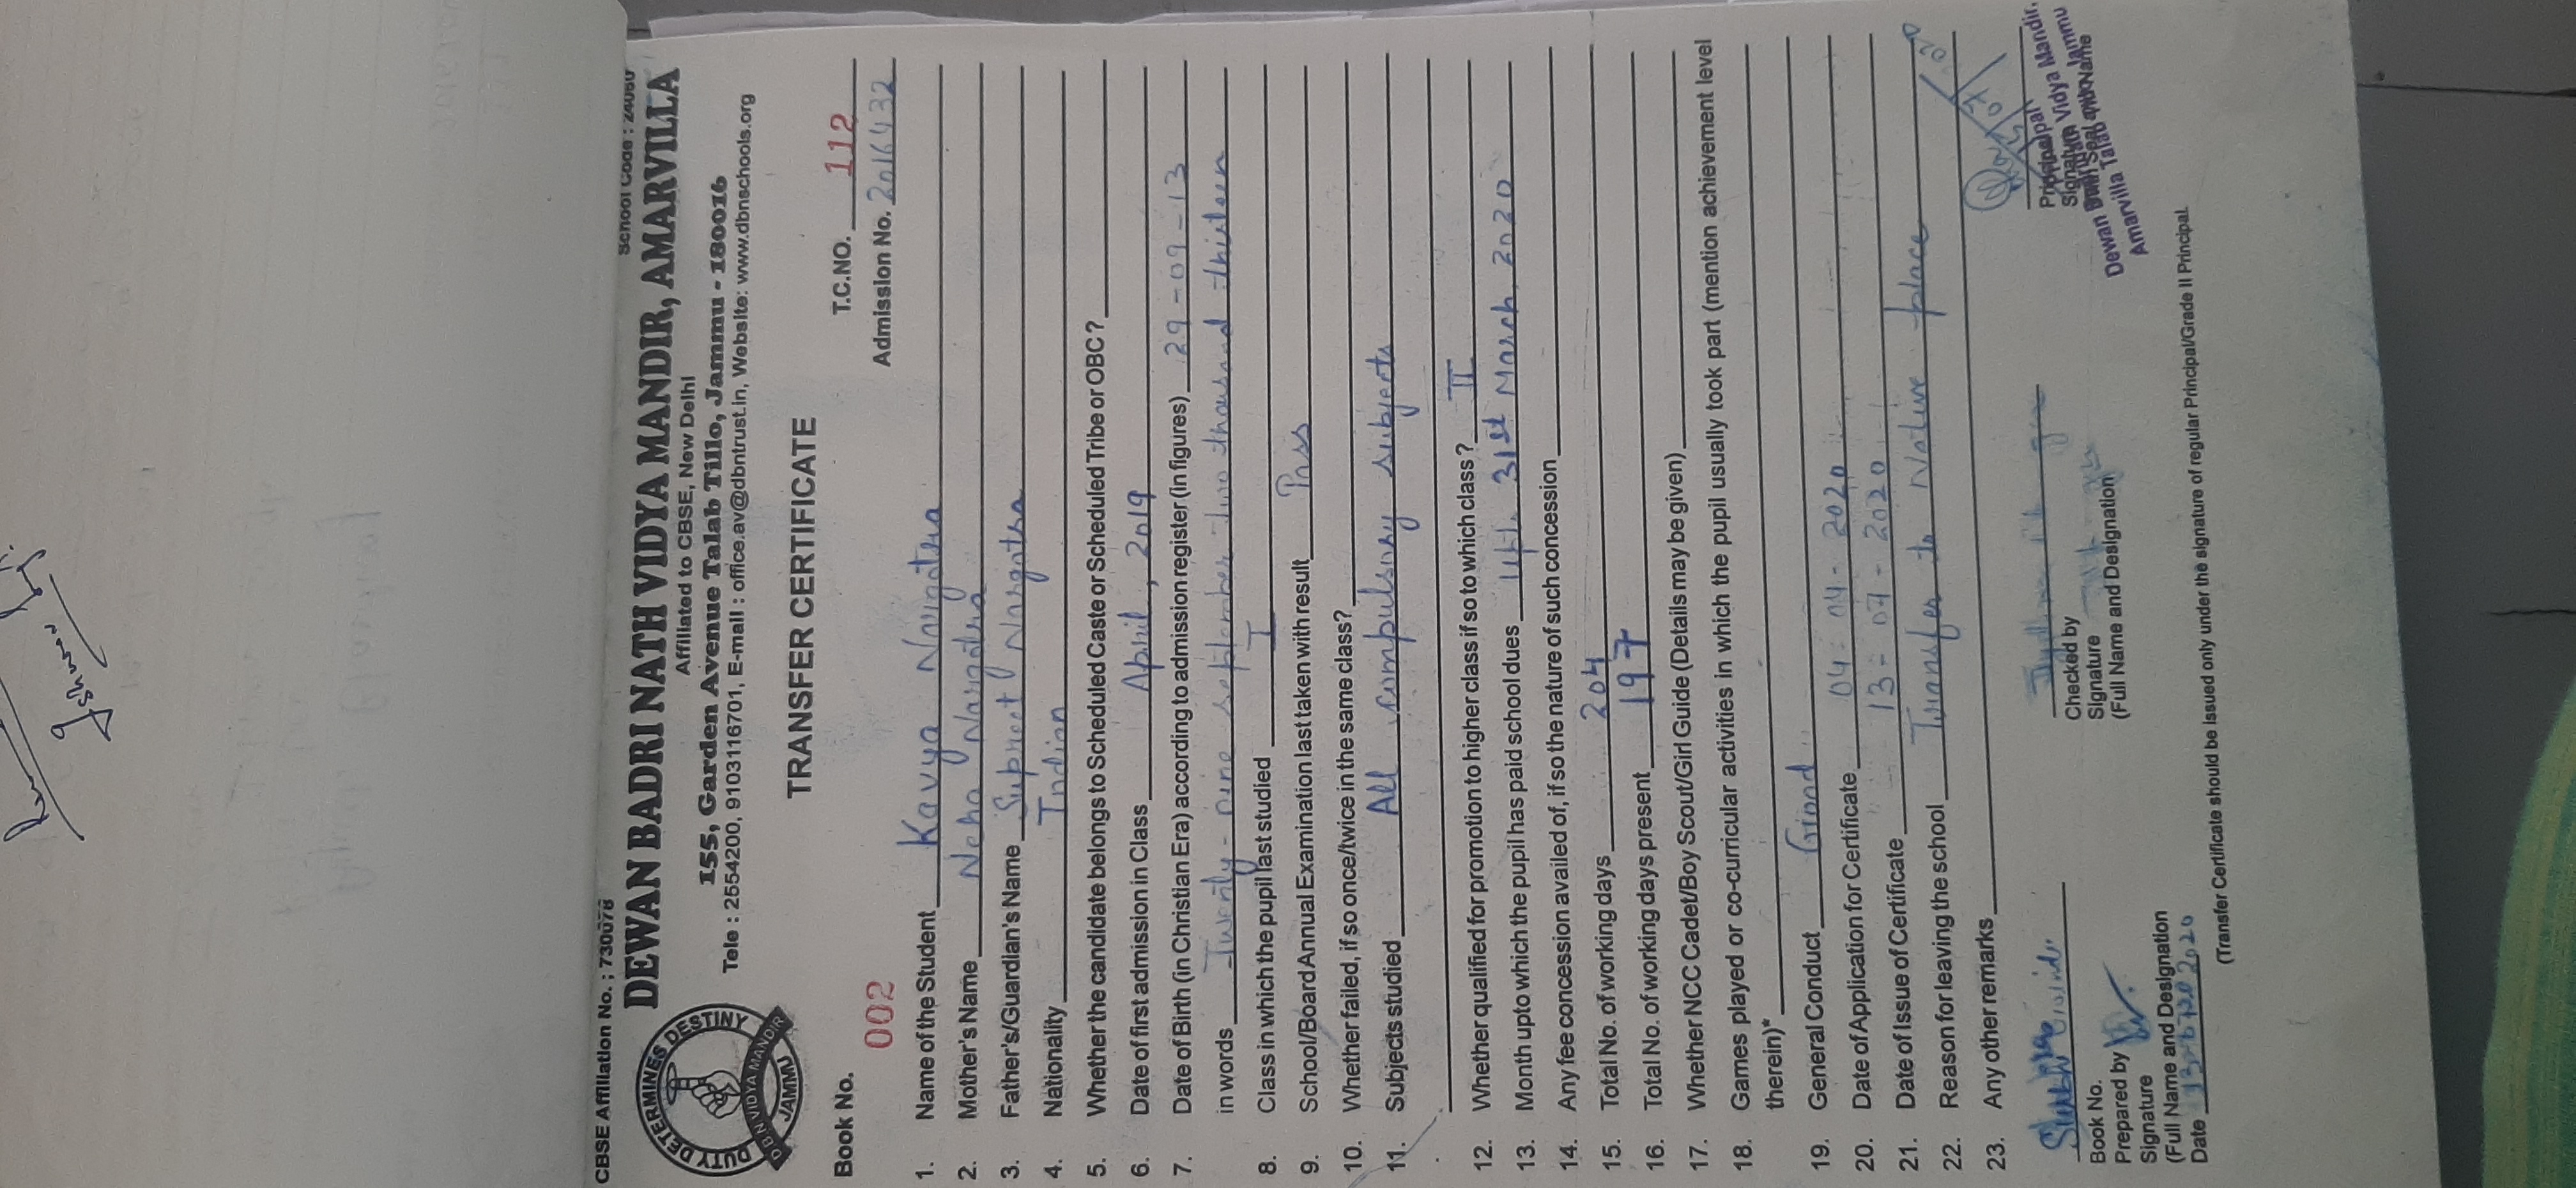 CBSE Affiliation No. : 730078 School Code : 24080
DEWAN BADRI NATH VIDYA MANDIR, AMARVILLA
Affiliated to CBSE, New Delhi
155, Garden Avenue Talab Tillo, Jammu - 180016
Tele : 2554200, 9103116701, E-mail : office.av@dbntrust.in, Website: www.dbnschools.org
DUTY DETERMINES DESTINY
D B N VIDYA MANDIR
JAMMU
TRANSFER CERTIFICATE
Book No. 002 T.C.NO. 112
Admission No. 2016432
1. Name of the Student Kavya Nargotra
2. Mother's Name Neha Nargotra
3. Father's/Guardian's Name Supreet Nargotra
4. Nationality Indian
5. Whether the candidate belongs to Scheduled Caste or Scheduled Tribe or OBC ?
6. Date of first admission in Class April, 2019
7. Date of Birth (in Christian Era) according to admission register (in figures) 29-09-13
in words Twenty-nine september two thousand thirteen
8. Class in which the pupil last studied I
9. School/Board Annual Examination last taken with result Pass
10. Whether failed, if so once/twice in the same class?
11. Subjects studied All compulsory subjects
12. Whether qualified for promotion to higher class if so to which class ? II
13. Month upto which the pupil has paid school dues upt. 31st March, 2020
14. Any fee concession availed of, if so the nature of such concession
15. Total No. of working days 204
16. Total No. of working days present 197
17. Whether NCC Cadet/Boy Scout/Girl Guide (Details may be given)
18. Games played or co-curricular activities in which the pupil usually took part (mention achievement level
therein)*
19. General Conduct Good
20. Date of Application for Certificate 04-04-2020
21. Date of Issue of Certificate 13-07-2020
22. Reason for leaving the school Transfer to Native place
23. Any other remarks
Book No.
Prepared by
Signature
(Full Name and Designation
Date 13-07-2020
Checked by
Signature
(Full Name and Designation)
Principal
Signature
Vidya Mandir,
Dewan
Amarvilla Talab Jammu
(Transfer Certificate should be issued only under the signature of regular Principal/Grade II Principal.